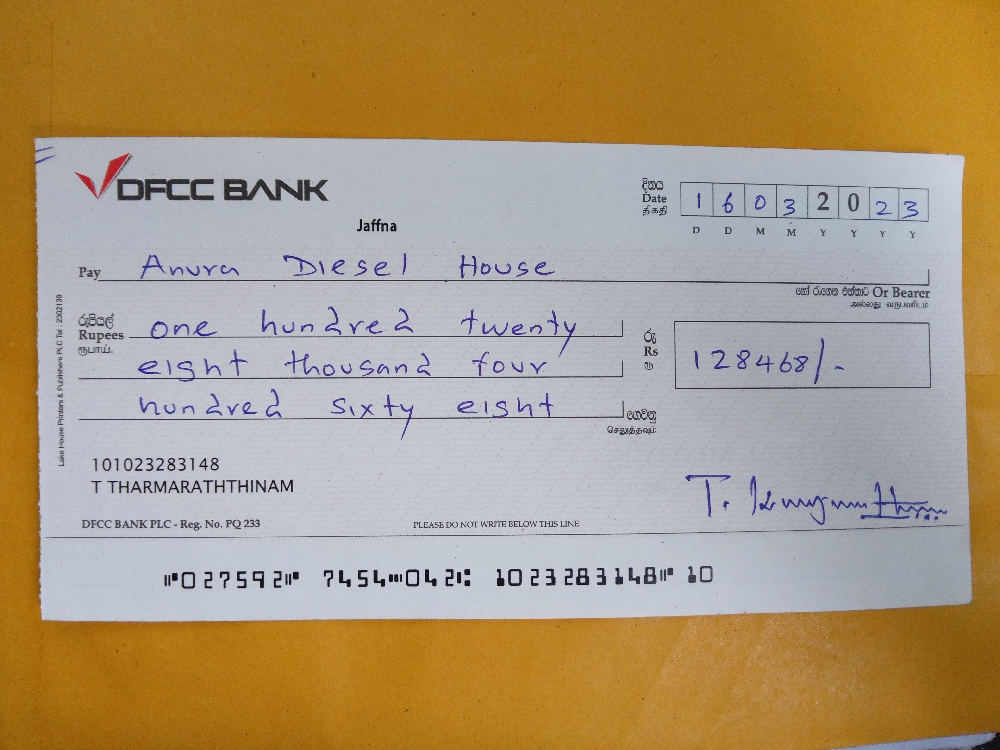 DFCC BANK
Jaffna
දිනය
Date
திகதி
1 6 0 3 2 0 2 3
D D M M Y Y Y Y
Pay Anura Diesel House
හෝ රැගෙන එන්නාට Or Bearer
அல்லது வருபவரிடம்
රුපියල්
Rupees
ரூபாய்.
one hundred twenty
eight thousand four
hundred sixty eight
ගෙවනු
செலுத்தவும்
රු
Rs
ரூ
128468/-
Lake House Printers & Publishers PLC Tel : 2302139
101023283148
T THARMARATHTHINAM
T.
DFCC BANK PLC - Reg. No. PQ 233
PLEASE DO NOT WRITE BELOW THIS LINE
⑈027592⑈ 7454⑉042⑆ 1023283148⑈ 10